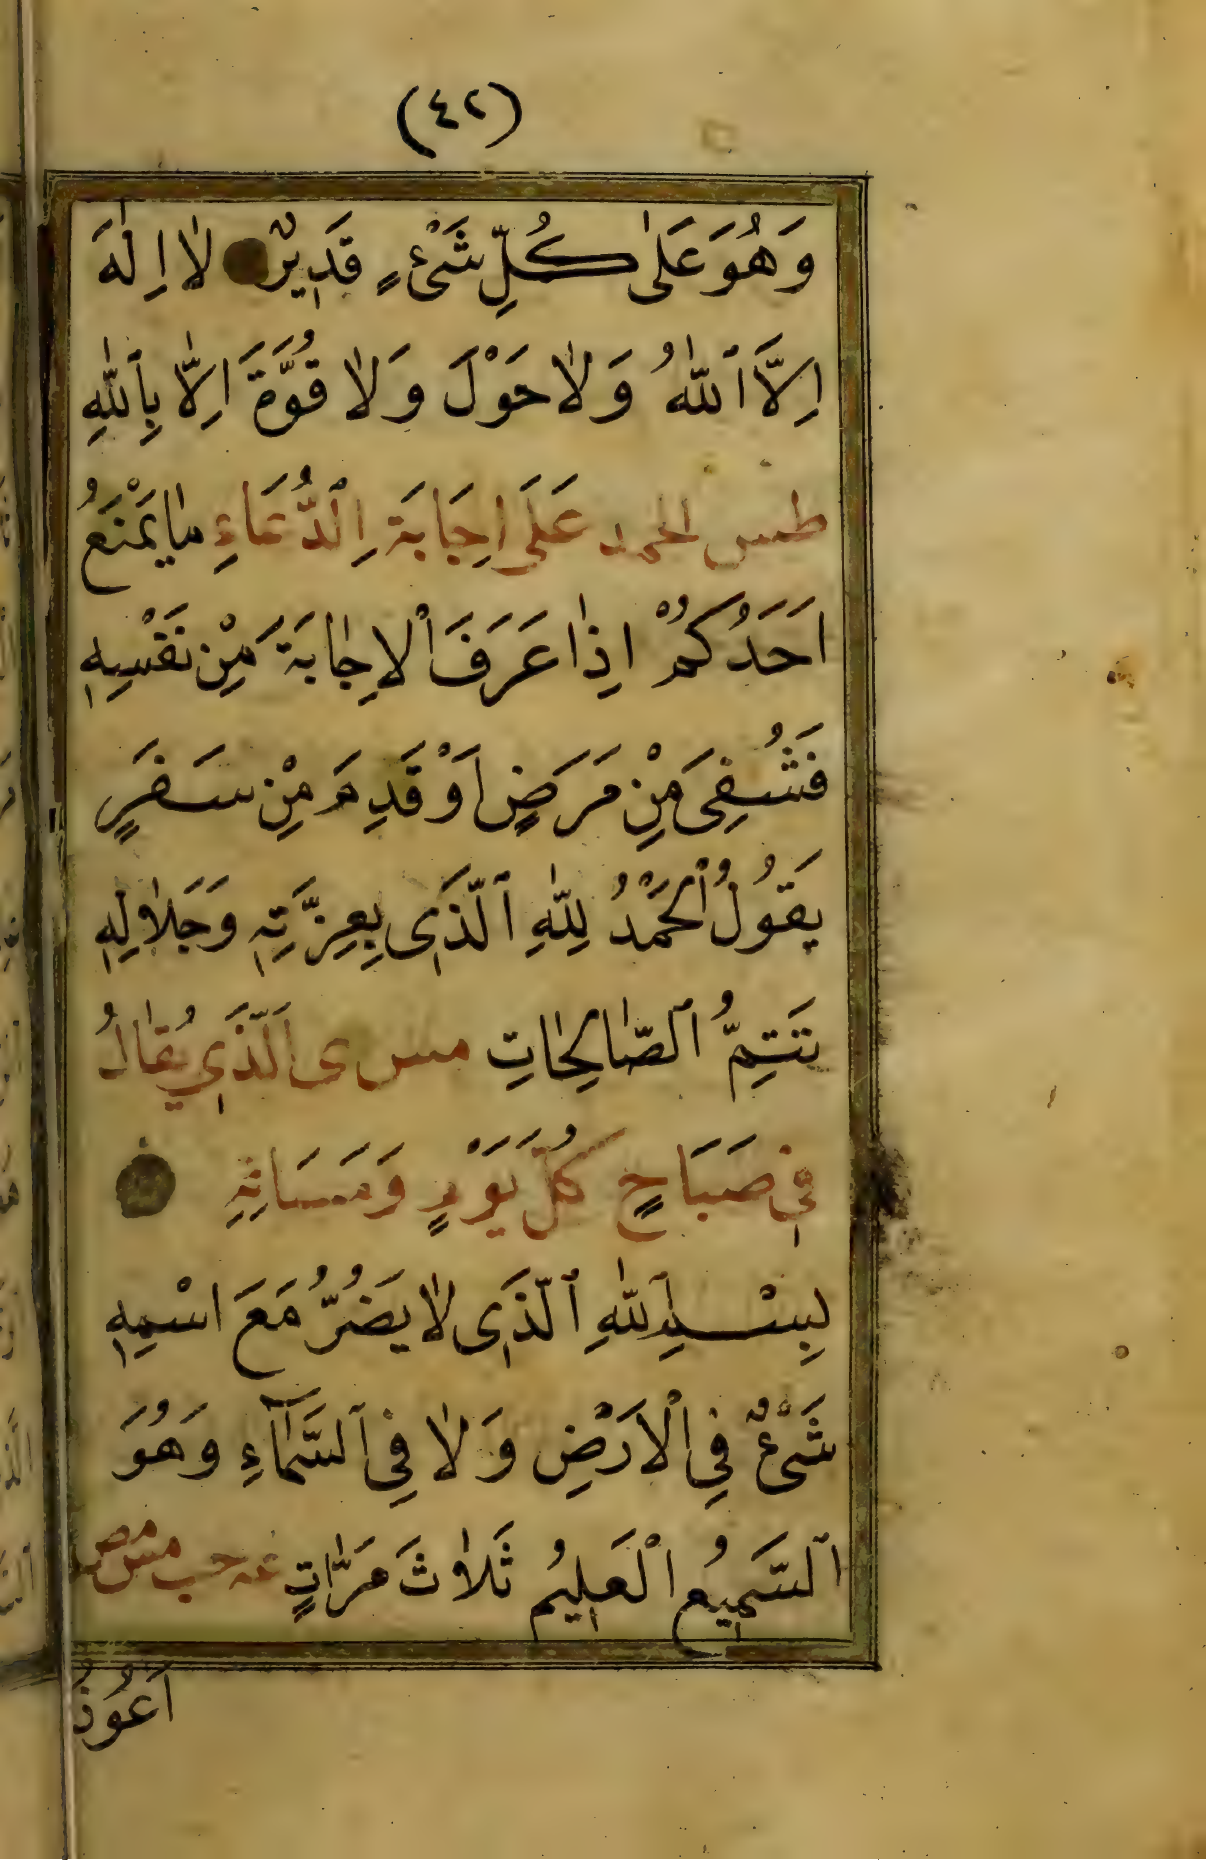 (٤٢)
وَهُوَ عَلٰى كُلِّ شَىْءٍ قَدِيرٌ لٰا اِلٰهَ
اِلَّا ٱللّٰهُ وَلٰا حَوْلَ وَلٰا قُوَّةَ اِلّٰا بِٱللّٰهِ
طس الحمد عَلَى اِجَابَةِ ٱلدُّعَاءِ مٰا يَمْنَعُ
اَحَدُكُمْ اِذٰا عَرَفَ ٱلاِجٰابَةَ مِنْ نَفْسِهِ
فَشُفِىَ مِنْ مَرَضٍ اَوْ قَدِمَ مِنْ سَفَرٍ
يَقُولُ ٱلْحَمْدُ لِلّٰهِ ٱلَّذِى بِعِزَّتِهِ وَجَلٰالِهِ
تَتِمُّ ٱلصّٰالِحٰاتِ مس ى اَلَّذِي يُقٰالُ
فِى صَبَاحِ كُلِّ يَوْمٍ وَمَسَائِهِ
بِسْــمِ ٱللّٰهِ ٱلَّذِى لٰا يَضُرُّ مَعَ اسْمِهِ
شَىْءٌ فِى الْاَرْضِ وَلٰا فِى ٱلسَّمٰٓاءِ وَهُوَ
ٱلسَّمِيعُ الْعَلِيمُ ثَلٰاثَ مَرّٰاتٍ عه حب مس مص
اَعُوذُ